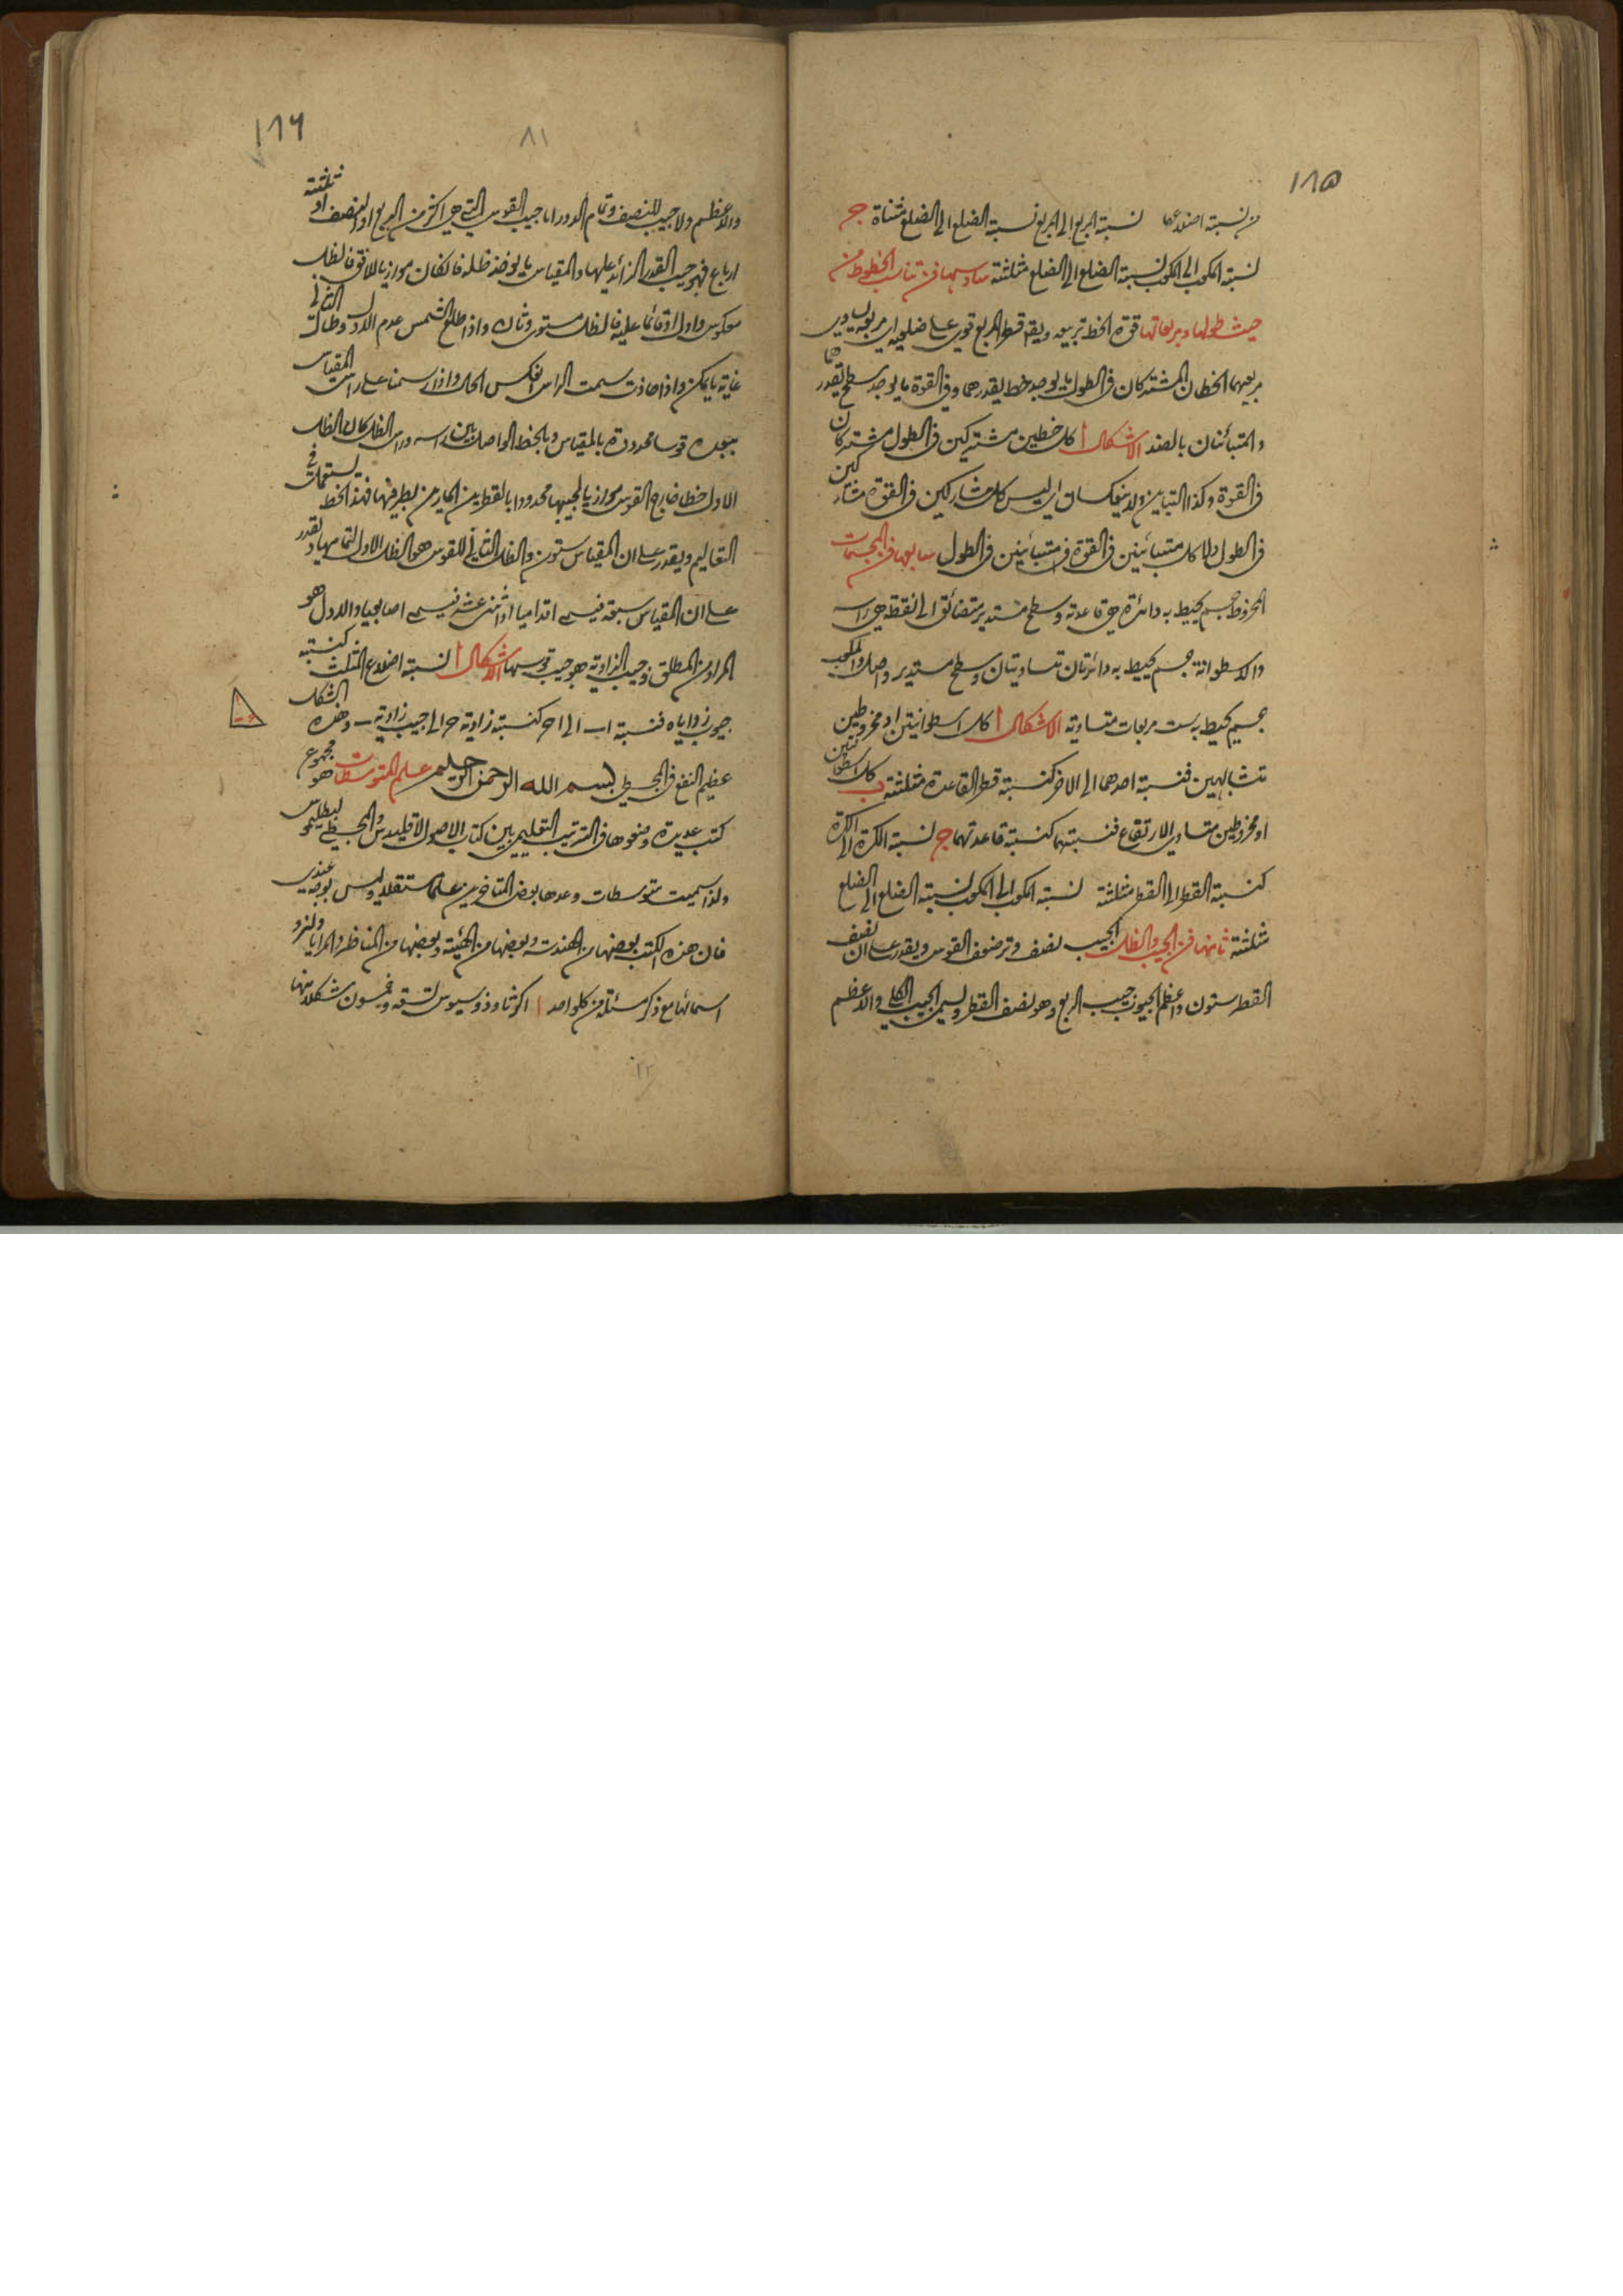 ١٨٥
من نسبة اضلاعها نسبة المربع الى المربع نسبة الضلع الى الضلع مثناة ج
نسبة المكعب الى المكعب نسبة الضلع الى الضلع مثلثة سادسها فن تناسب الخطوط من
حيث طولها ومربعاتها قوة الخط تربيعه ويقه قطر المربع قوي على ضلعيه اي مربعه يساوي
مربعهما الخطان المشتركان في الطول ما يوجد خط يقدرهما وفي القوة ما يوجد سطح يقدرهما
والمتبائنان بالضد الاشكال ا كل خطين مشتركين في الطول مشتركان
في القوة وكذا التباين ولا ينعكسان اي ليس كل متشاركين في القوة متشاركين
في الطول ولا كل متبائنين في القوة متبائنين في الطول سابعها فن المجسمات
المخروط جسم يحيط به دائرة هي قاعدته وسطح مستدير متضائق الى نقطة هي راسه
والاسطوانة جسم يحيط به دائرتان متساويتان وسطح مستدير واصل والمكعب
جسم يحيط به ست مربعات متساوية الاشكال ا كل اسطوانتين او مخروطين
متشابهين فنسبة احدهما الى الاخر كنسبة قطر القاعدة مثلثة ب كل اسطوانتين
او مخروطين متساوي الارتفاع فنسبتهما كنسبة قاعدتهما ج نسبة الكرة الى الكرة
كنسبة القطر الى القطر مثلثة نسبة المكعب الى المكعب نسبة الضلع الى الضلع
مثلثة ثامنها فن الجيب والظل الجيب نصف وتر ضعف القوس ويقدر على ان نصف
القطر ستون واعظم الجيوب جيب الربع وهو نصف القطر ويسمى الجيب الكلي والاعظم
١٨٦
٨١
والاعظم ولا جيب للنصف وتمام الدور اما جيب القوس التي هي اكثر من الربع او النصف او ثلثة
ارباع فهو جيب القدر الزائد عليها والمقياس ما يوخذ ظله فان كان موازيا للافق فالظل
معكوس واول او قائما عليه فالظل مستوي وثان واذا طلع الشمس عدم الاول وطال الثاني
غاية ما يمكن واذا حاذت سمت الراس انعكس الحال واذا رسمنا على راس المقياس
ببعده قوسا محدودة بالمقياس وبالخط الواصل بين راسه وراس الظل كان الظل
الاول خطا خارج القوس موازيا لجيبها محدودا بالقطرين المارين بطرفيها فهذا الخط يستعمل في
التعاليم ويقدر على ان المقياس ستون والظل الثاني للقوس هو الظل الاول لتمامها ويقدر
على ان المقياس سبعة فيسمى اقداميا او اثنى عشر فيسمى اصابعيا والاول هو
المراد من المطلق وجيب الزاوية هو جيب قوسها الاشكال ا نسبة اضلاع المثلث كنسبة
جيوب زواياه فنسبة اب الى اح كنسبة زاوية ح الى جيب زاوية ب وهذه الشكل
عظيم النفع في المجسطي بسم الله الرحمن الرحيم علم المتوسطات هو مجموع
كتب عديدة وضعوها في الترتيب التعليمي بين كتاب الاصول لاقليدس والمجسطي لبطليموس
ولذا سميت متوسطات وعدها بعض المتاخرين علما مستقلا وليس بوجه عندي
فان هذه الكتب بعضها من الهندسة وبعضها من الهيئة وبعضها من المناظر والمرايا ولنورد
اسمائها مع ذكر مسئلة من كل واحد ا اكر ثاوذوسيوس تسعة وخمسون شكلا منها